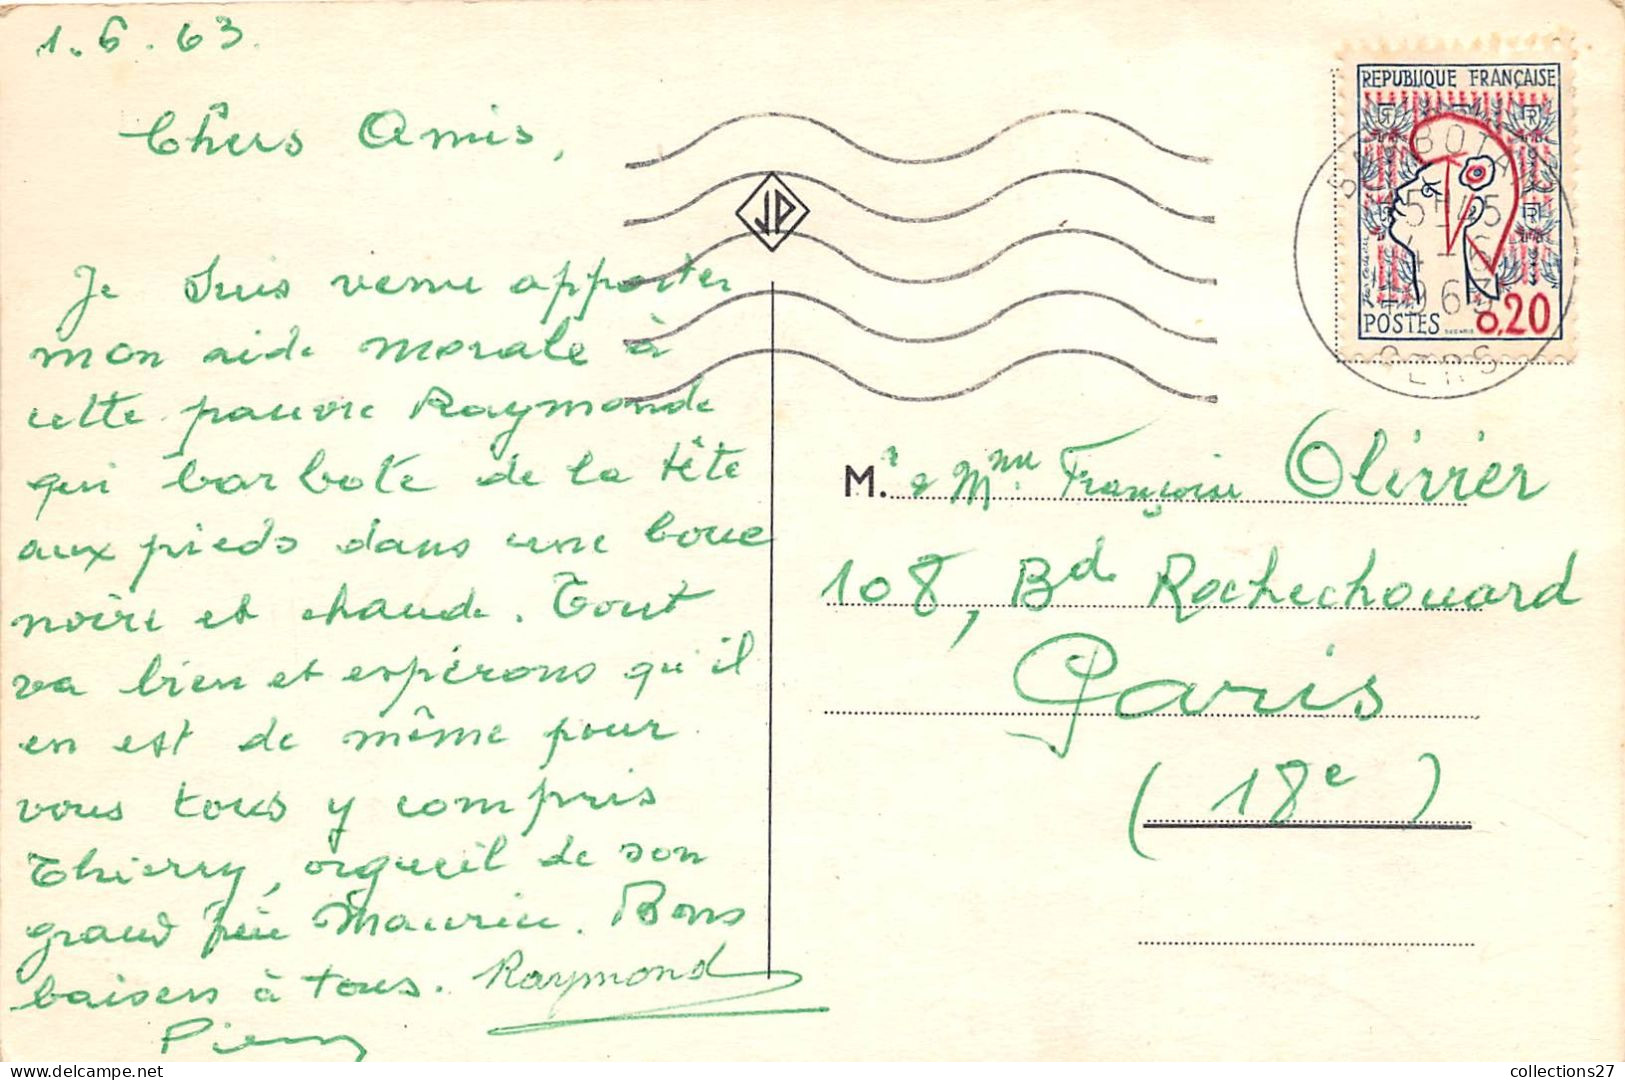 1.6.63.
Chers Amis,
Je suis venu apporter
mon aide morale à
cette pauvre Raymonde
qui barbote de la tête
aux pieds dans une boue
noire et chaude. Tout
va bien et espérons qu'il
en est de même pour
vous tous y compris
Thierry, orgueil de son
grand père Maurice. Bons
baisers à tous. Raymond
REPUBLIQUE FRANÇAISE
POSTES 0,20
BARBOTAN
GERS
JP
M.r & Mme Françoise Olivier
108, Bd Rochechouard
Paris
(18e)
collections27